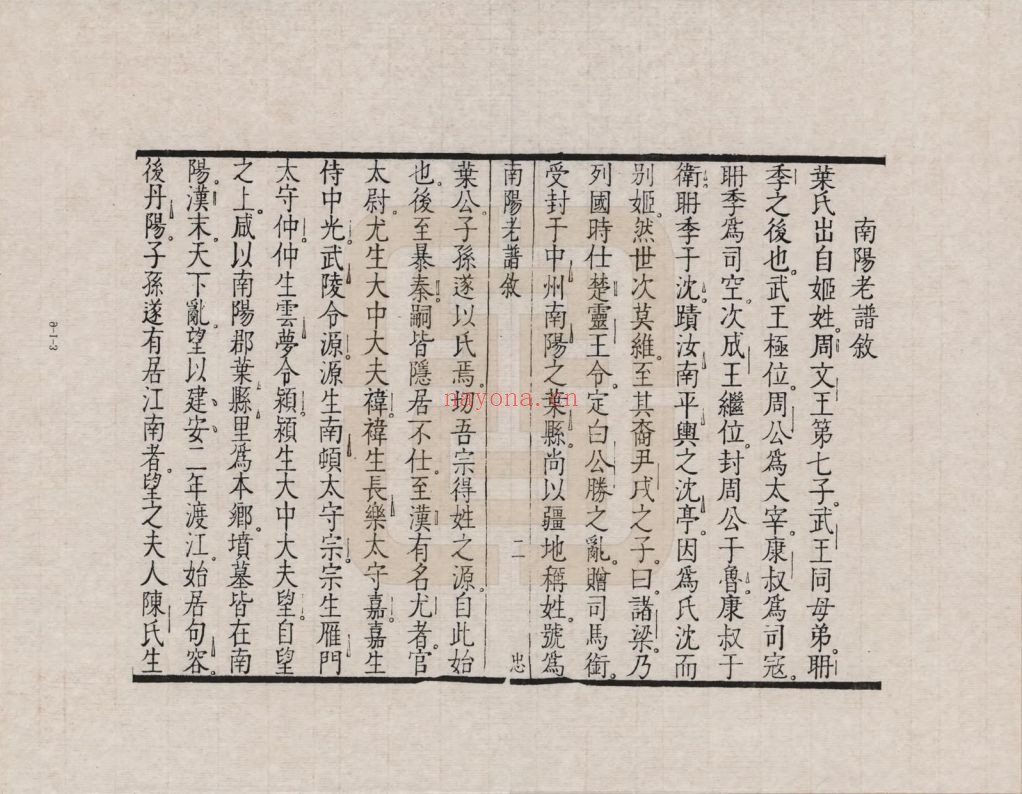 南陽老譜敘
葉氏出自姬姓。周文王第七子。武王同母弟。聃
季之後也。武王極位。周公爲太宰。康叔爲司寇。
聃季爲司空。次成王繼位。封周公于魯。康叔于
衛。聃季于沈。蹟汝南平輿之沈亭。因爲氏沈而
别姬。然世次莫維。至其裔尹戌之子。曰諸梁。乃
列國時仕楚靈王。令定白公勝之亂。贈司馬銜。
受封于中州南陽之葉縣。尚以疆地稱姓。號爲
南陽老譜敘
二
忠
葉公。子孫遂以氏焉。切吾宗得姓之源。自此始
也。後至暴秦。嗣皆隱居不仕。至漢有名尤者。官
太尉。尤生大中大夫禕。禕生長樂太守嘉。嘉生
侍中光。武陵令源。源生南頓太守宗。宗生雁門
太守仲。仲生雲夢令穎。穎生大中大夫望。自望
之上。咸以南陽郡葉縣里爲本鄉。墳墓皆在南
陽。漢末。天下亂。望以建安二年渡江。始居句容。
後丹陽。子孫遂有居江南者。望之夫人陳氏。生
nayona.cn
a-1-3